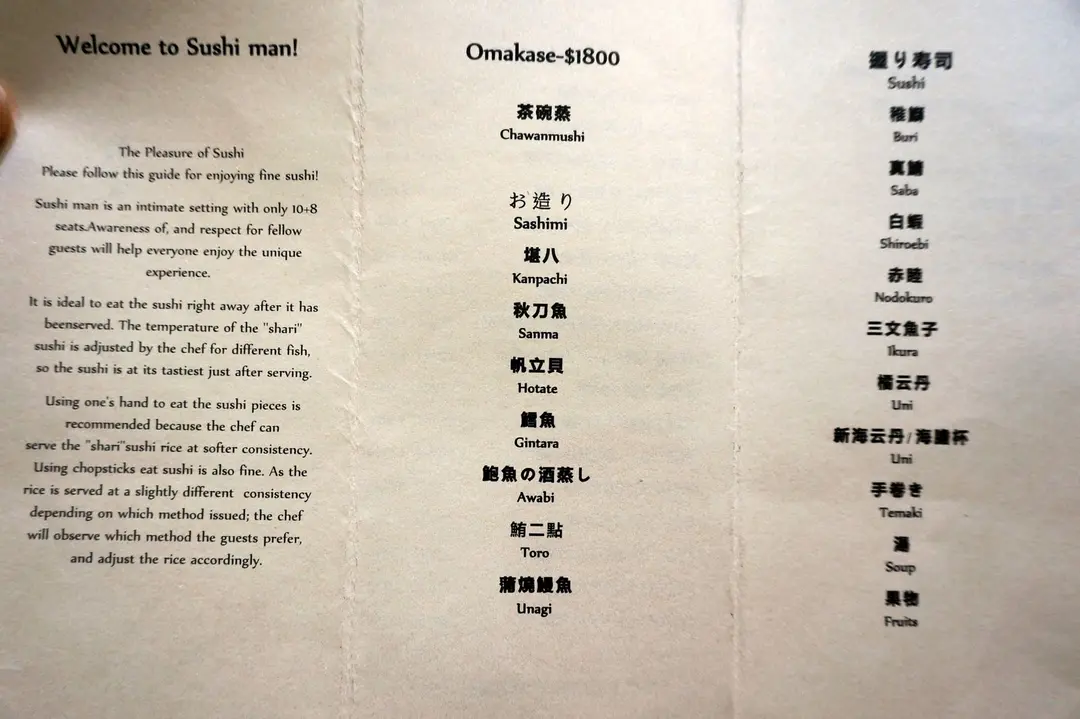 Welcome to Sushi man!
The Pleasure of Sushi
Please follow this guide for enjoying fine sushi!
Sushi man is an intimate setting with only 10+8
seats.Awareness of, and respect for fellow
guests will help everyone enjoy the unique
experience.
It is ideal to eat the sushi right away after it has
beenserved. The temperature of the "shari"
sushi is adjusted by the chef for different fish,
so the sushi is at its tastiest just after serving.
Using one's hand to eat the sushi pieces is
recommended because the chef can
serve the "shari"sushi rice at softer consistency.
Using chopsticks eat sushi is also fine. As the
rice is served at a slightly different consistency
depending on which method issued; the chef
will observe which method the guests prefer,
and adjust the rice accordingly.
Omakase-$1800
茶碗蒸
Chawanmushi
お造り
Sashimi
堪八
Kanpachi
秋刀魚
Sanma
帆立貝
Hotate
鱈魚
Gintara
鮑魚の酒蒸し
Awabi
鮪二點
Toro
蒲燒鰻魚
Unagi
握り寿司
Sushi
稚鰤
Buri
真鯖
Saba
白蝦
Shiroebi
赤睦
Nodokuro
三文魚子
Ikura
橘云丹
Uni
新海云丹/海膽杯
Uni
手巻き
Temaki
湯
Soup
果物
Fruits